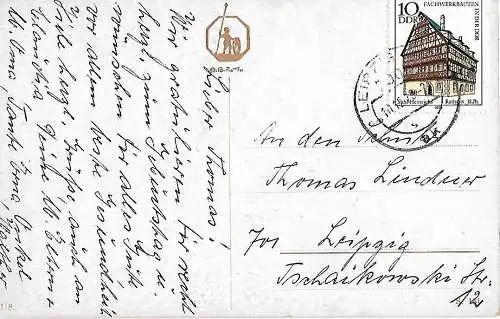 Lieber Thomas!
Wir gratulieren Dir recht
herzl. zum Geburtstag u.
wünschen Dir alles Gute
vor allem beste Gesundheit
Viele herzl. Grüße auch an
Deine lb. Eltern +
Claudia
lb. Oma, Tante Irma Onkel
Walter
FACHWERKBAUTEN
IN DER DDR
10
DDR
LEIPZIG
An den Schüler
Thomas Lindner
701 Leipzig
Tschaikowski Str.
12